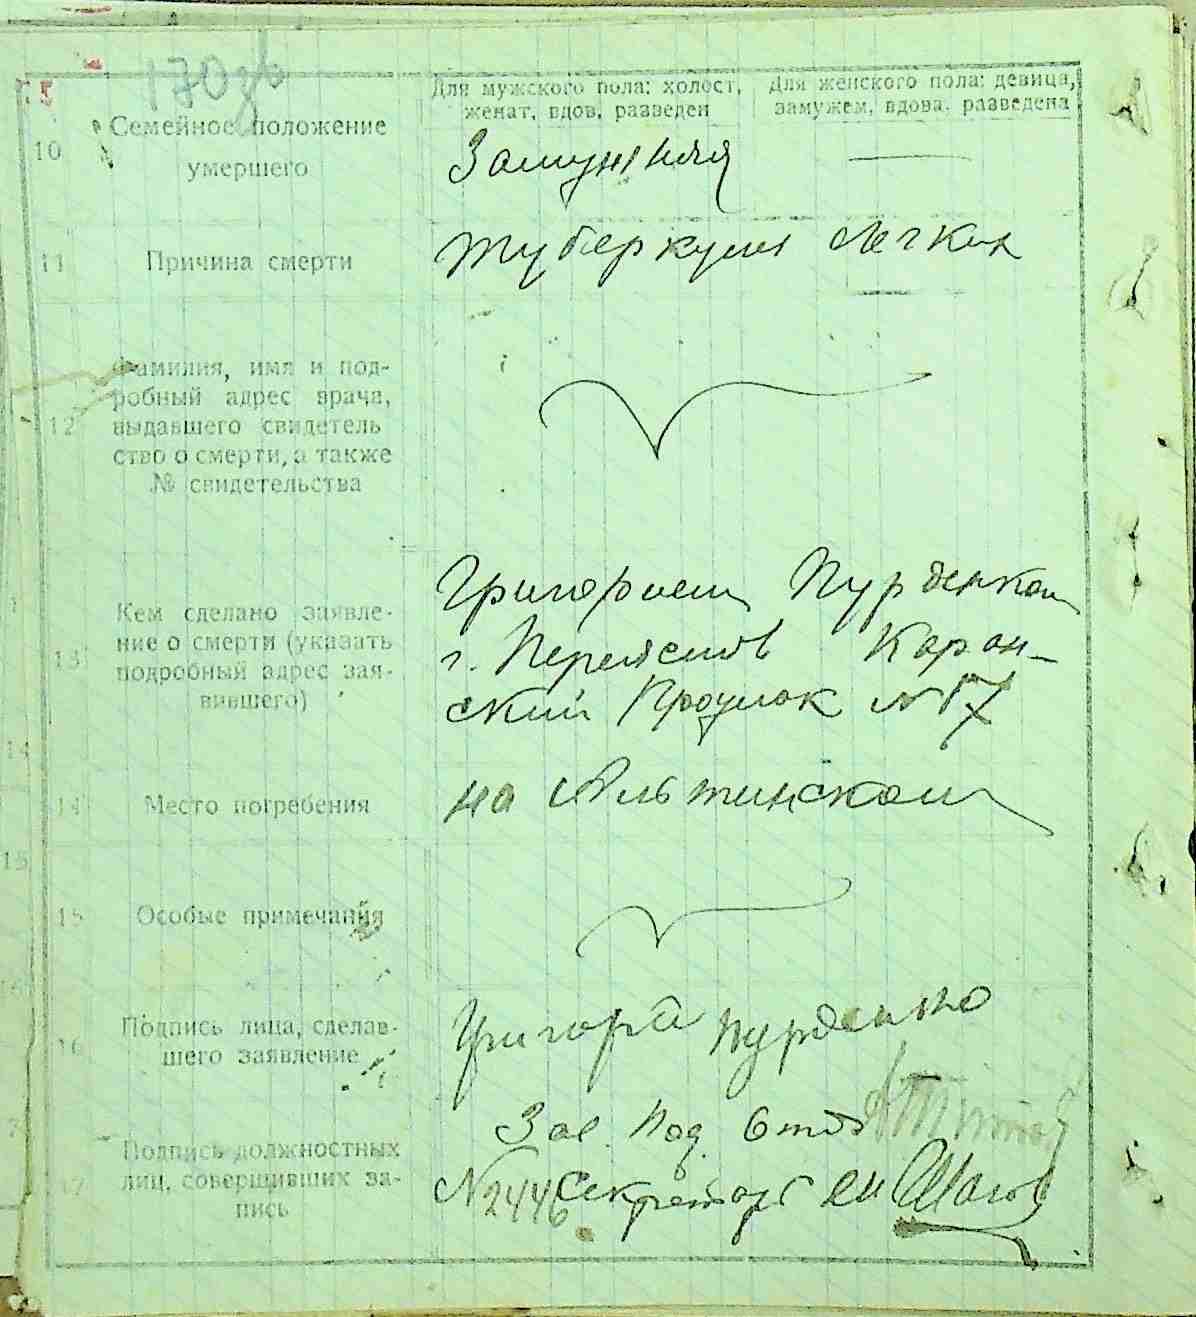 170зв
Для мужского пола: холост,
женат, вдов, разведен
Для женского пола: девица,
замужем, вдова, разведена
10
Семейное положение
умершего
Замужняя
11
Причина смерти
Туберкулез легких
12
Фамилия, имя и под-
робный адрес врача,
выдавшего свидетель
ство о смерти, а также
№ свидетельства
13
Кем сделано заявле-
ние о смерти (указать
подробный адрес зая-
вившего)
Григорием Пурденком
г. Переяслов Каран-
ский Проулок №17
14
14
Место погребения
на Альтинском
15
15
Особые примечания
16
Подпись лица, сделав-
шего заявление
Григорій Пурденко
17
Подпись должностных
лиц, совершивших за-
пись
Зав. Под Отд
N 2446 Секретарь